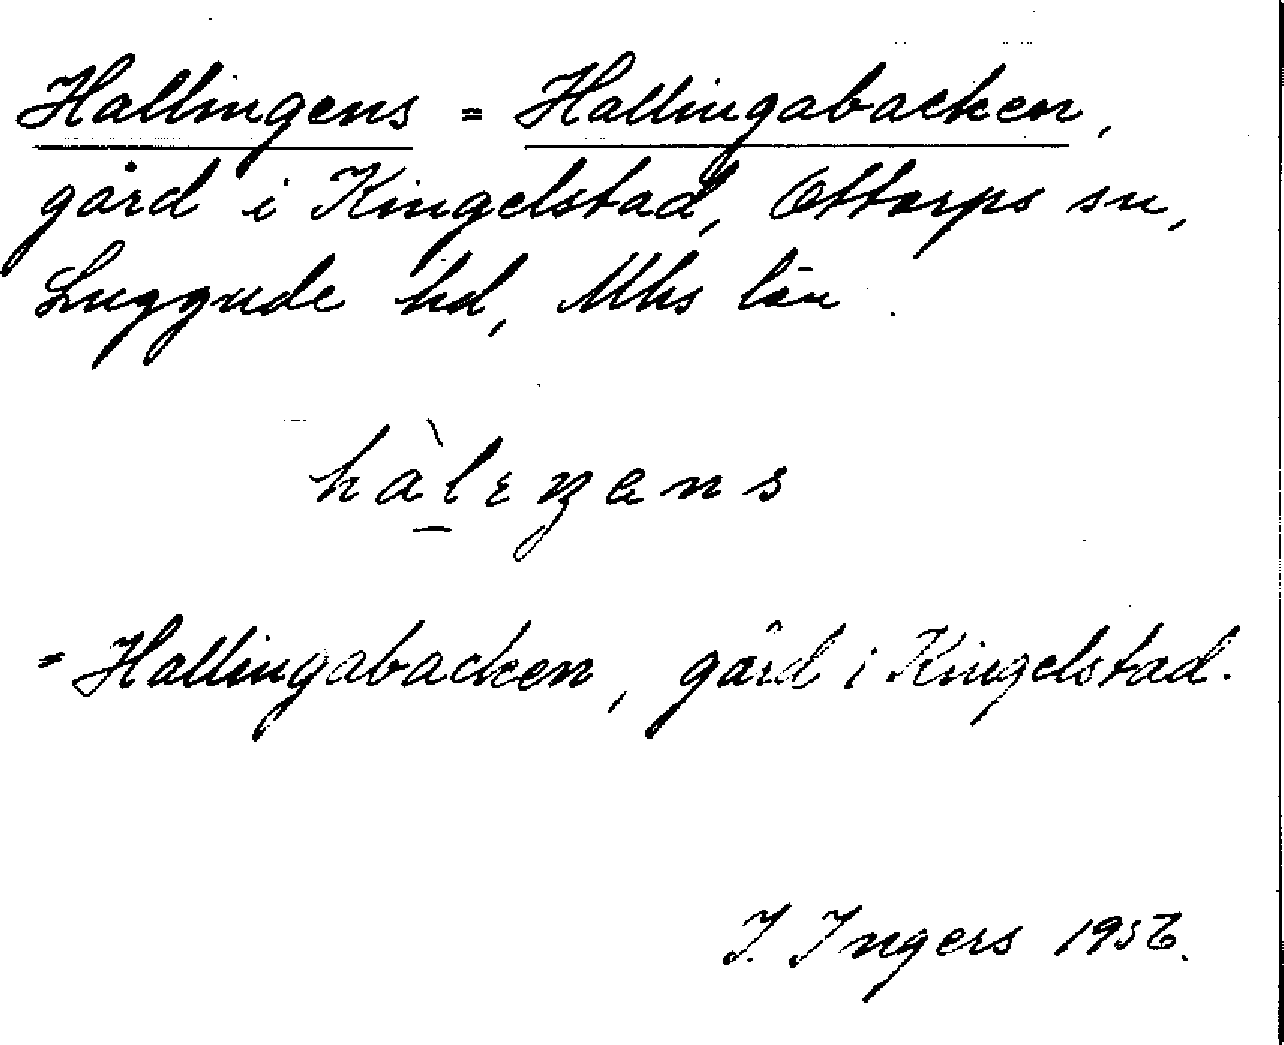 Hallingens = Hallingabacken,
gård i Kingelstad, Ottarps sn,
Luggude hd, Mhs län.
hàlɩŋens
= Hallingabacken, gård i Kingelstad.
I. Ingers 1956.